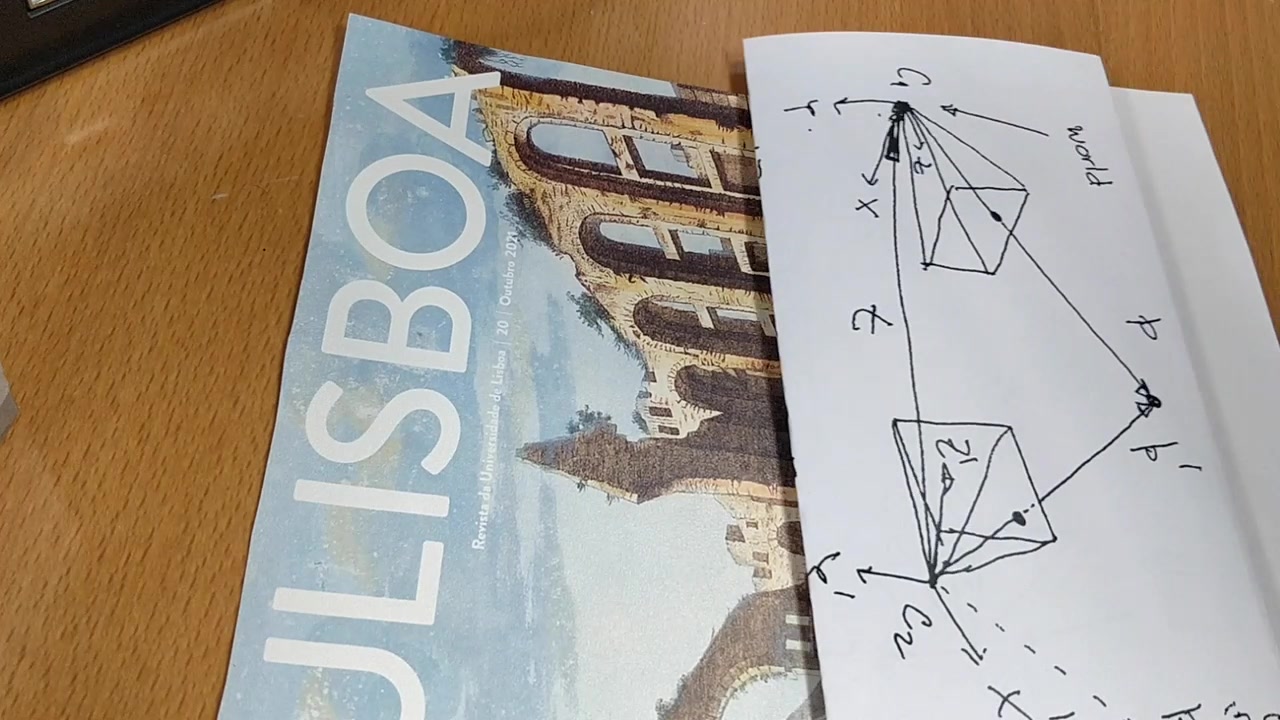 ULISBOA
Revista da Universidade de Lisboa | 20 | Outubro 2021
C1
world
Y
X
z
t
p
p'
z'
Y'
C2
X'